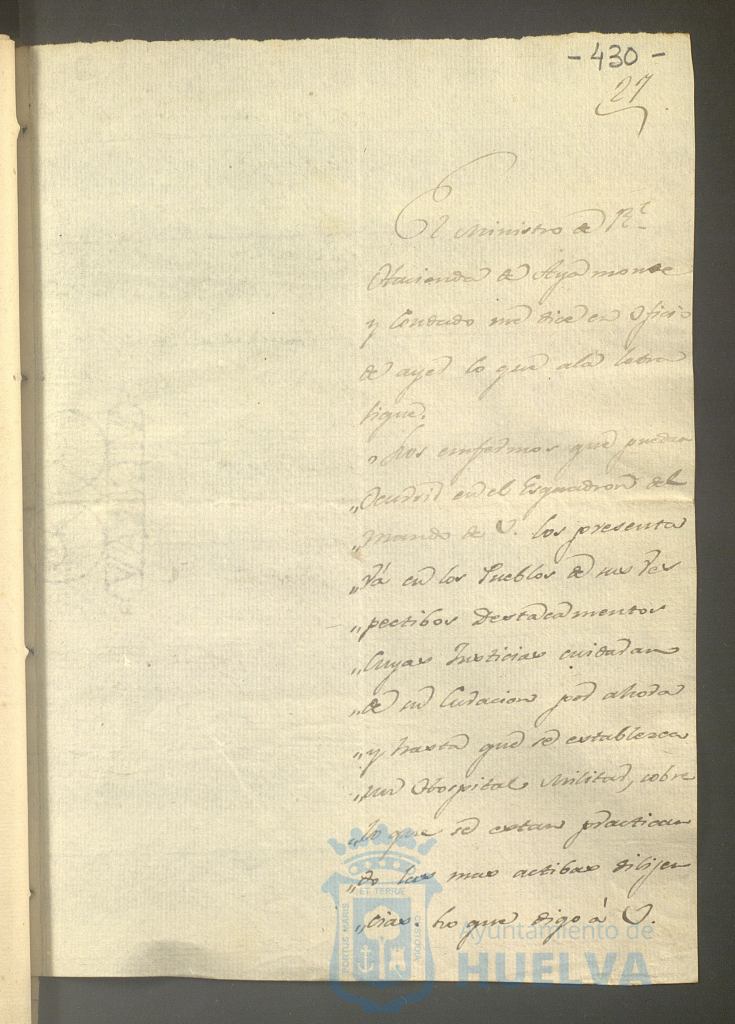 - 430 -
27
El Ministro de Rl
Hacienda de Ayamonte
y Condado me dice en oficio
de ayer lo que ala letra
sigue.
„ Los enfermos que puedan
„ocurrir en el Esquadron del
„mando de V. los presenta
„rá en los Pueblos de sus res
„pectibos Destacamentos
„Cuyas Justicias cuidaran
„de su Curacion por ahora
„y hasta que se establezca
„un Hospital Militar, sobre
„lo que se estan practican
„do las mas actibas dilijen
„cias. Lo que digo á V.
PORTUS MARIS
ET TERRAE
CUSTODIA
Ayuntamiento de
HUELVA